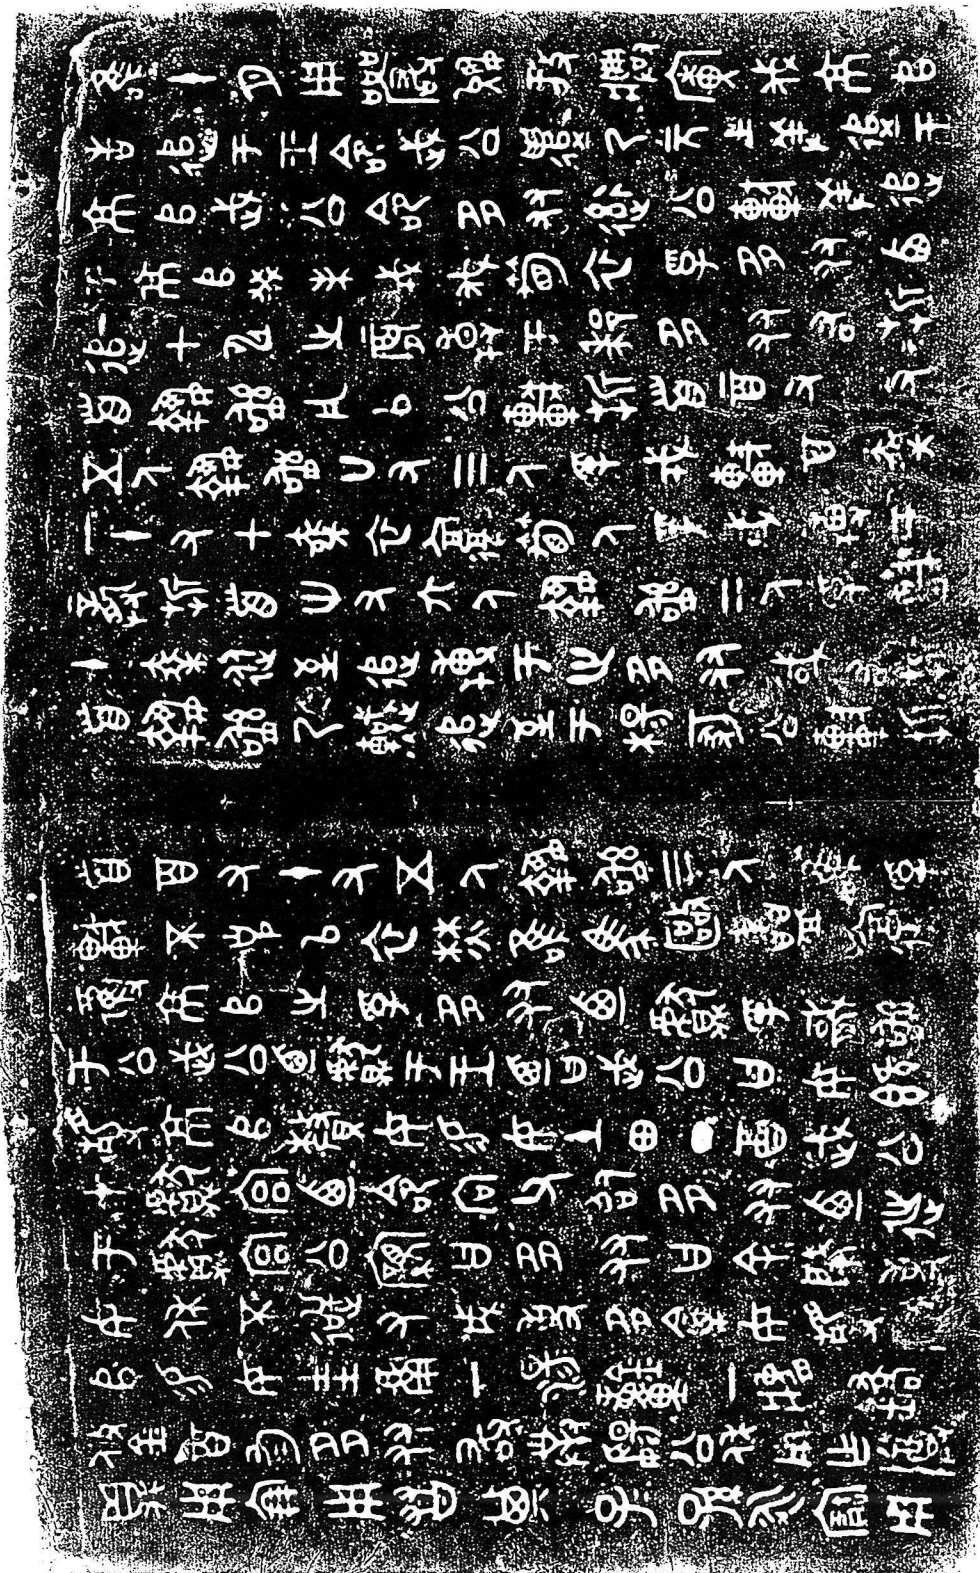 唯十月用玁狁放興廣伐京𠂤
告追于王命武公遣乃元士羞追于
京𠂤武公命多友率公車羞追
于京𠂤癸未戎伐筍衣孚多友西
追甲申之晨搏于漆多友右折
首執訊凡以公車折首二百又又
五人執訊廿又三人孚戎車百乘
一十又七乘衣復筍人孚或搏于
龔折首卅又六人執訊二人孚車
十乘從至追搏于世多友或右折
首執訊乃追至于楊冢公車折
首百又十又五人執訊三人唯孚
車不克以衣焚唯馬敺盡復
奪京𠂤之孚多友乃獻孚馘訊
于公武公乃獻于王乃曰武公曰女既
靜京𠂤釐女易女土田丁酉武公
才獻宮乃命向父召多友乃徙
于獻宮公親曰多友曰余肈使
女休不逆又成事多禽女靜京
𠂤易女圭瓚一湯鐘一肆鐈鋚
百勻多友敢對揚公休用乍尊
鼎用倗用友其子子孫永寶用